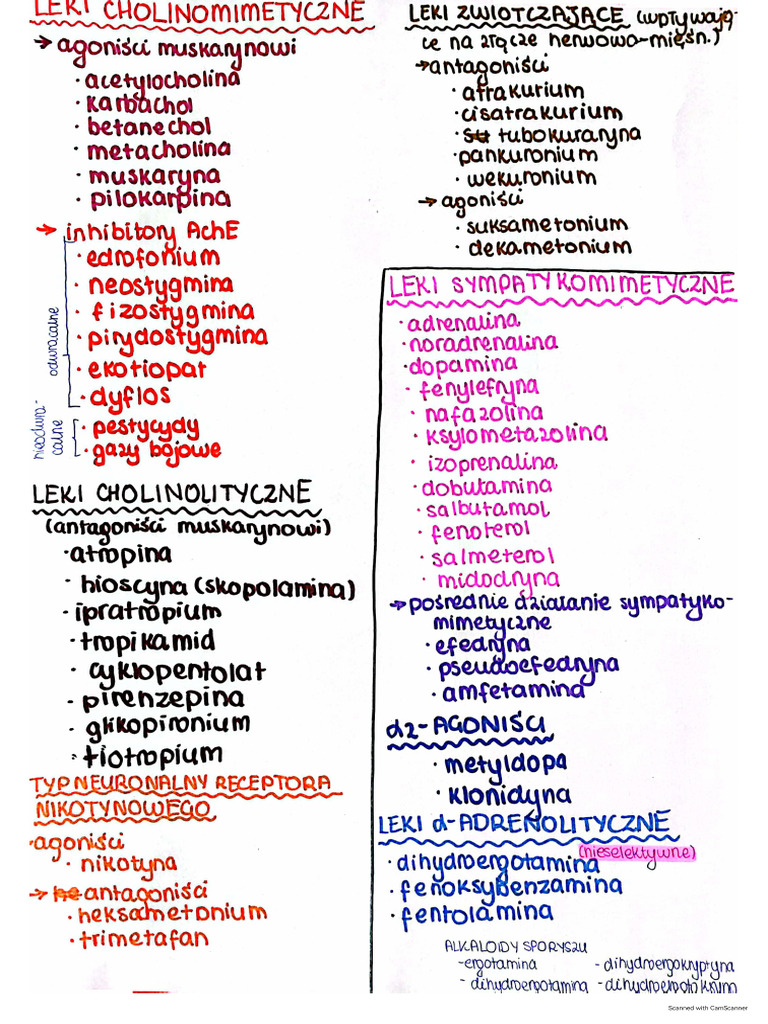 LEKI CHOLINOMIMETYCZNE
→ agoniści muskarynowi
· acetylocholina
· karbachol
· betanechol
· metacholina
· muskaryna
· pilokarpina
→ inhibitory AchE
odwracalne
· edrofonium
· neostygmina
· fizostygmina
· pirydostygmina
· ekotiopat
· dyflos
nieodwra-
calne
· pestycydy
· gazy bojowe
LEKI CHOLINOLITYCZNE
(antagoniści muskarynowi)
· atropina
· hioscyna (skopolamina)
· ipratropium
· tropikamid
· cyklopentolat
· pirenzepina
· glikopironium
· tiotropium
TYP NEURONALNY RECEPTORA
NIKOTYNOWEGO
· agoniści
· nikotyna
→ antagoniści
· heksametonium
· trimetafan
LEKI ZWIOTCZAJĄCE (wpływają-
ce na złącze nerwowo-mięśn.)
→ antagoniści
· atrakurium
· cisatrakurium
· tubokuraryna
· pankuronium
· wekuronium
→ agoniści
· suksametonium
· dekametonium
LEKI SYMPATYKOMIMETYCZNE
· adrenalina
· noradrenalina
· dopamina
· fenylefryna
· nafazolina
· ksylometazolina
· izoprenalina
· dobutamina
· salbutamol
· fenoterol
· salmeterol
· midodryna
→ pośrednie działanie sympatyko-
mimetyczne
· efedryna
· pseudoefedryna
· amfetamina
α2-AGONIŚCI
· metyldopa
· klonidyna
LEKI α-ADRENOLITYCZNE
(nieselektywne)
· dihydroergotamina
· fenoksybenzamina
· fentolamina
ALKALOIDY SPORYSZU
- ergotamina
- dihydroergotamina
- dihydroergokryptyna
- dihydroergotoksyna
Scanned with CamScanner